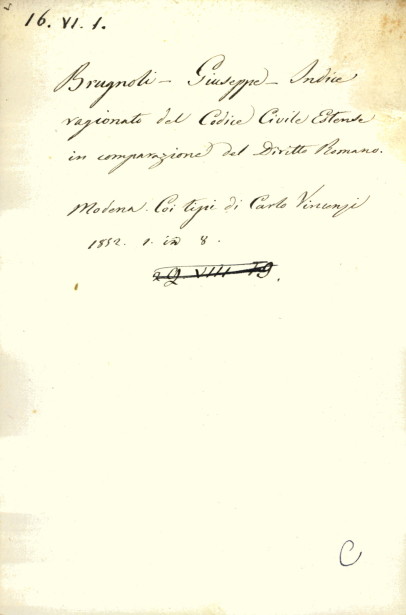 16. VI. 1.
Brugnoli - Giuseppe - Indice
ragionato del Codice Civile Estense
in comparazione del Diritto Romano.
Modena. Coi tipi di Carlo Vincenzi
1852. 1. in 8.
29. VIII 19.
C